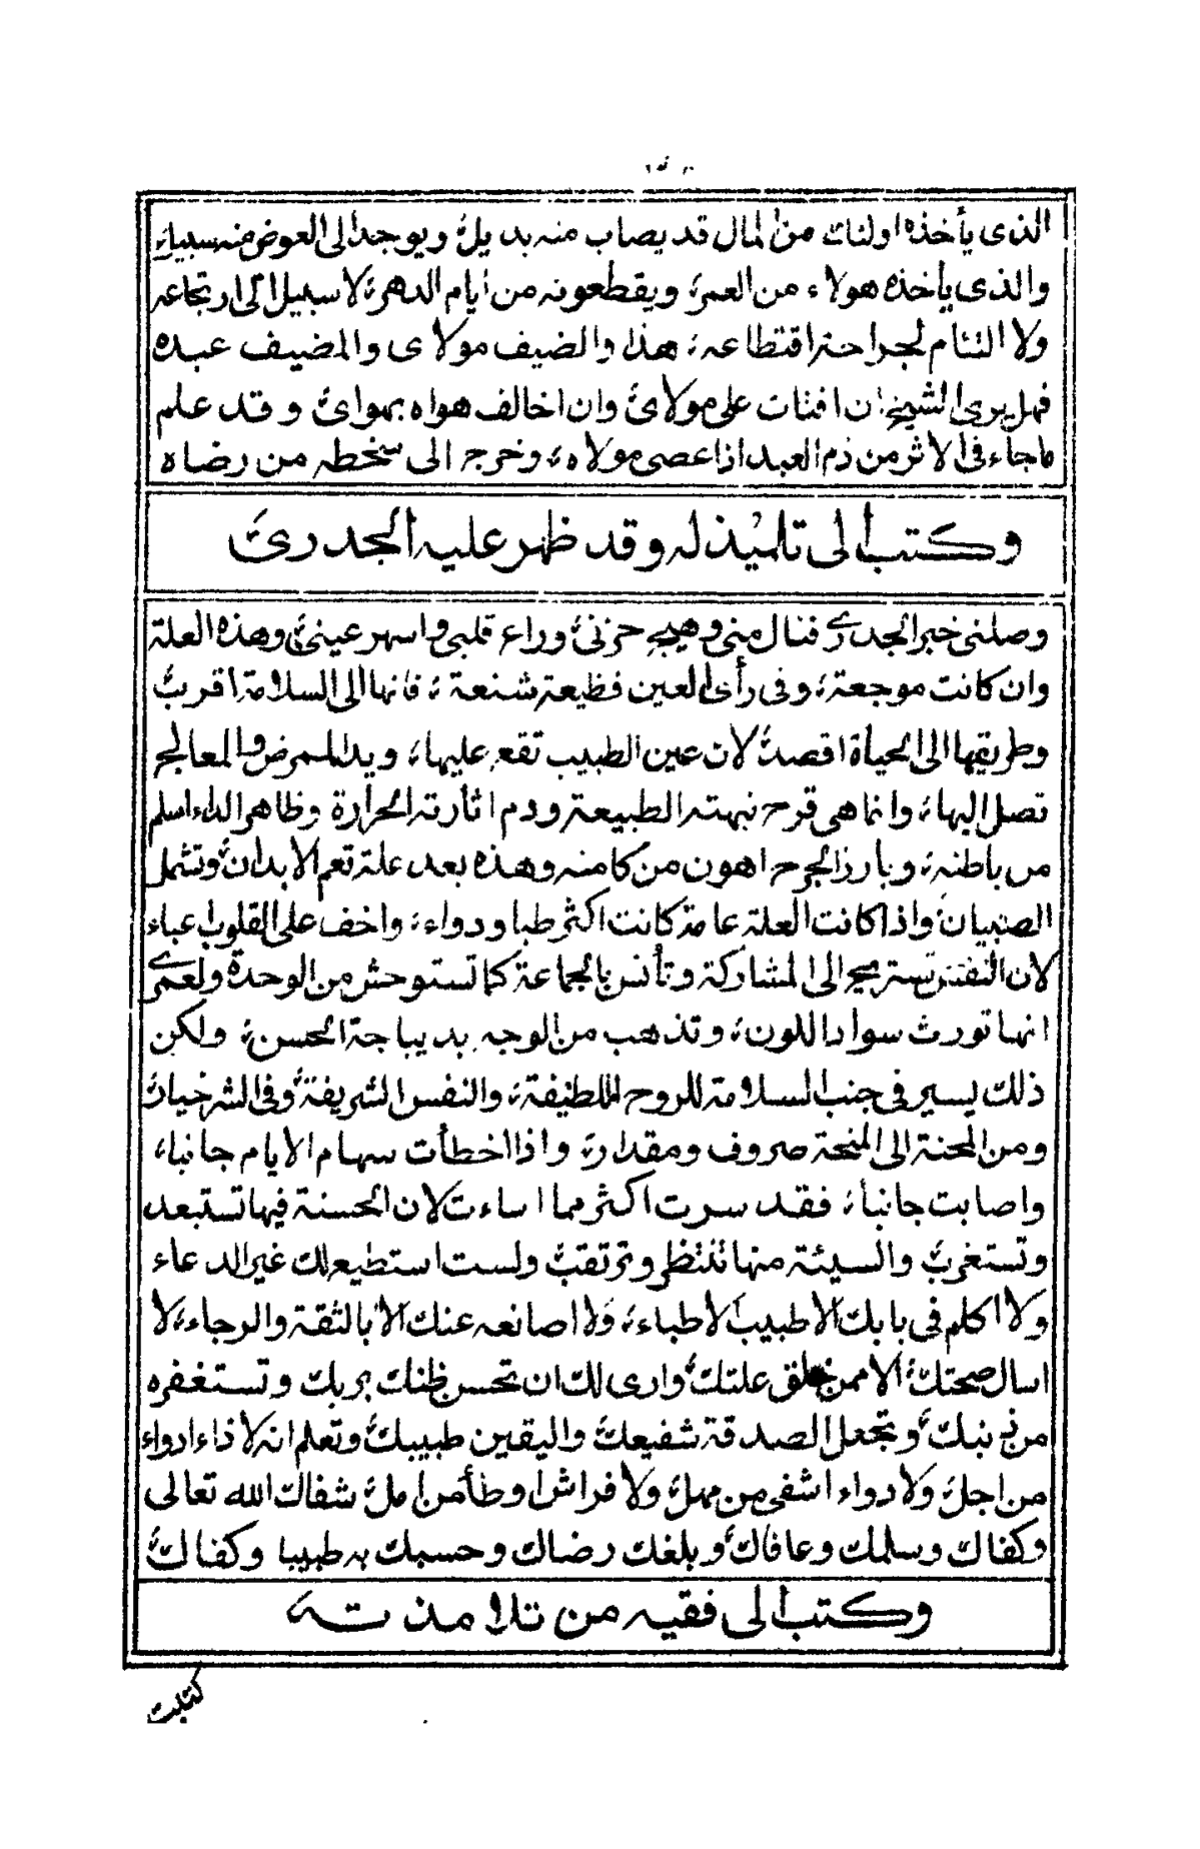 الذى يأخذه اولئك من المال قد يصاب منه بديل؛ ويوجد الى العوض منه سبيل؛
والذى يأخذه هولاء من العمر؛ ويقطعونه من ايام الدهر؛ لا سبيل الى ارتجاعه
ولا التئام لجراحة اقتطاعه؛ هذا والضيف مولاى والمضيف عبده
فهل يرى الشيخ ان افتات على مولائ وان اخالف هواه بهوائ وقد علم
ما جاء فى الاثر من ذم العبد اذا عصى مولاه؛ وخرج الى سخطه من رضاه
وكتب الى تلميذ له وقد ظهر عليه الجدرى
وصلنى خبر الجدرى فنال منى وهيج حزنى؛ وراع قلبى واسهر عينى؛ وهذه العلة
وان كانت موجعة؛ وفى رأى العين فظيعة شنعة؛ فانها الى السلامة اقرب
وطريقها الى الحياة اقصد؛ لان عين الطبيب تقع عليها؛ ويد الممرض والمعالج
تصل اليها؛ وانما هى قرح نبهته الطبيعة ودم اثارته الحرارة وظاهر الداء اسلم
من باطنه؛ وبارز الجرح اهون من كامنه وهذه بعد علة تعم الابدان؛ وتشمل
الصبيان واذا كانت العلة عامة كانت اكثر طبا ودواء؛ واخف على القلوب اعباء
لان النفس تستريح الى المشاركة وتأنس بالجماعة كما تستوحش من الوحدة ولعمرى
انها تورث سواد اللون؛ وتذهب من الوجه بديباجة الحسن؛ ولكن
ذلك يسير فى جنب السلامة للروح اللطيفة؛ والنفس الشريفة؛ وفى الشر خيار
ومن المحنة الى المنحة صروف ومقدار؛ واذا اخطأت سهام الايام جانبا؛
واصابت جانبا؛ فقد سرت اكثر مما اساءت لان الحسنة فيها تستبعد
وتستغرب والسيئة منها تنتظر وترتقب ولست استطيع لك غير الدعاء
ولا اكلم فى بابك الا طبيب الاطباء؛ ولا اصانعه عنك الا بالثقة والرجاء؛ لا
اسال صحتك؛ الا ممن خلق علتك؛ وارى لك ان تحسن ظنك بربك وتستغفره
من ذنبك؛ وتجعل الصدقة شفيعك واليقين طبيبك؛ وتعلم انه لا داء ادواء
من اجل؛ ولا دواء اشفى من مهل؛ ولا فراش اوطأ من امل؛ شفاك الله تعالى
وكفاك وسلمك وعافاك؛ وبلغك رضاك وحسبك به طبيبا وكفاك؛
وكتب الى فقيه من تلامذته
كتبت